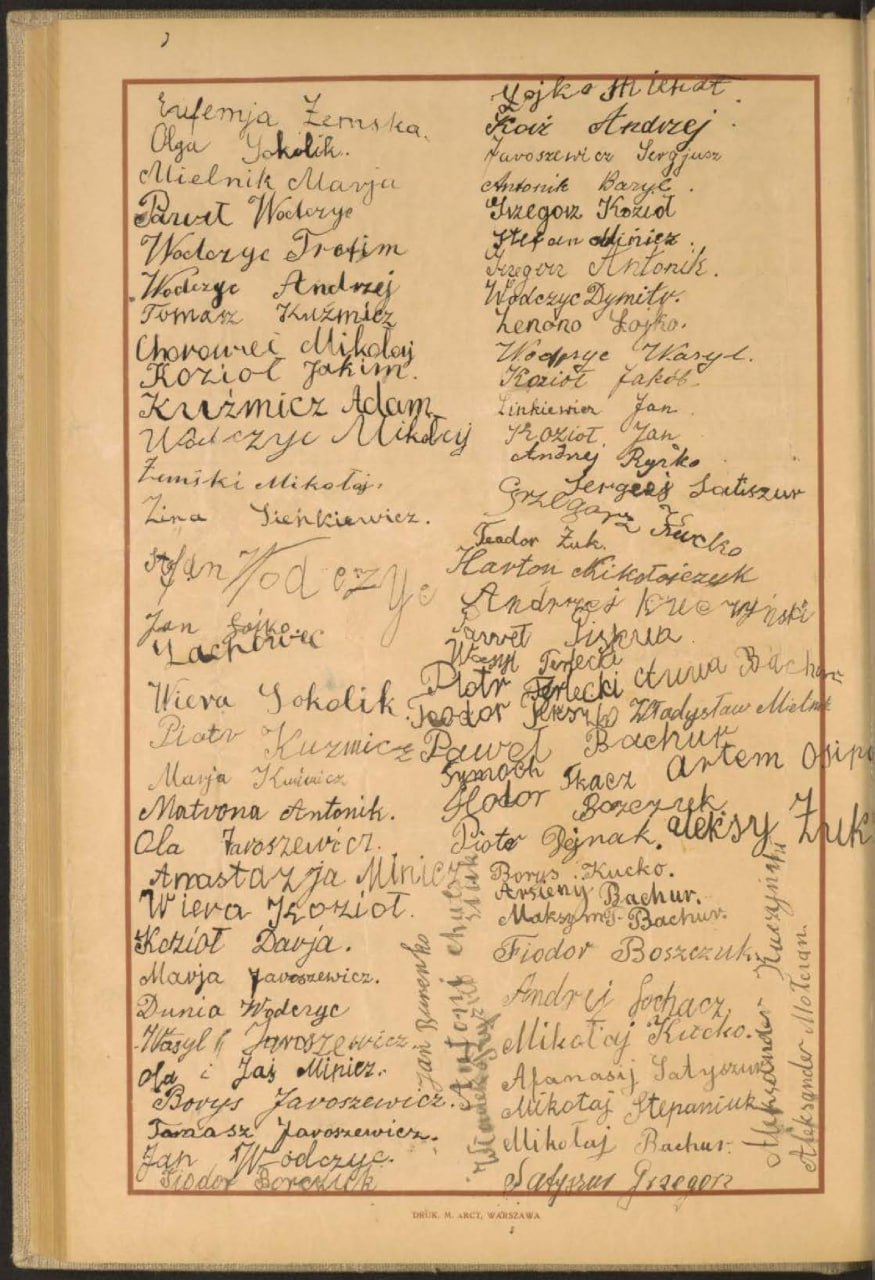 Eufemja Żemska.
Olga Sokolik.
Mielnik Marja
Paweł Wodczyc
Wodczyc Trofim
Wodczyc Andrzej
Tomasz Kuźmicz
Chorowiec Mikołaj
Kozioł Jakim.
Kuźmicz Adam
Wodczyc Mikołaj
Żemski Mikołaj.
Zina Sieńkiewicz.
Stefan Wodczyc
Jan Łojko
Lachowiec
Wiera Sokolik
Piotr Kuzmicz
Marja Kuźmicz
Matrona Antonik.
Ola Jaroszewicz.
Anastazja Minicz
Wiera Kozioł.
Kozioł Darja.
Marja Jaroszewicz.
Dunia Wodczyc
Wasyl Jaroszewicz.
Ola i Jaś Minicz.
Borys Jaroszewicz.
Tomasz Jaroszewicz.
Jan Wodczyc.
Fiodor Borczuk
Łojko Michał
Koź Andrzej
Jaroszewicz Sergjusz
Antonik Bazyl.
Grzegorz Kozioł
Stefan Minicz.
Grzegorz Antonik.
Wodczyc Dymitr.
Zenono Łojko.
Wodczyc Wasyl.
Kozioł Jakób.
Sinkiewicz Jan
Kozioł Jan
Andrej Ryśko
Sergej Satiszur
Grzegorz Kucko
Teodor Żuk.
Harton Mikołajczuk
Andrzej Kruczyński
Paweł Piskun
Wasyl Terlecki
Piotr Terlecki Anna Bachur
Teodor Władysław Mielnik
Paweł Bachur
Symoch Tkacz Artem Osip
Hodor Boszczuk
Piotr Dejnak. Aleksy Żuk
Borys Kucko.
Arsieny Bachur.
Maksym Bachur.
Fiodor Boszczuk.
Andrej Sochacz
Mikołaj Kucko.
Afanasij Satyszur
Mikołaj Stepaniuk
Mikołaj Bachur.
Satyszur Grzegorz
Jan Burenko
Antoni
Aleksander Kuczyński
Aleksander Mołczan.
DRUK. M. ARCT, WARSZAWA